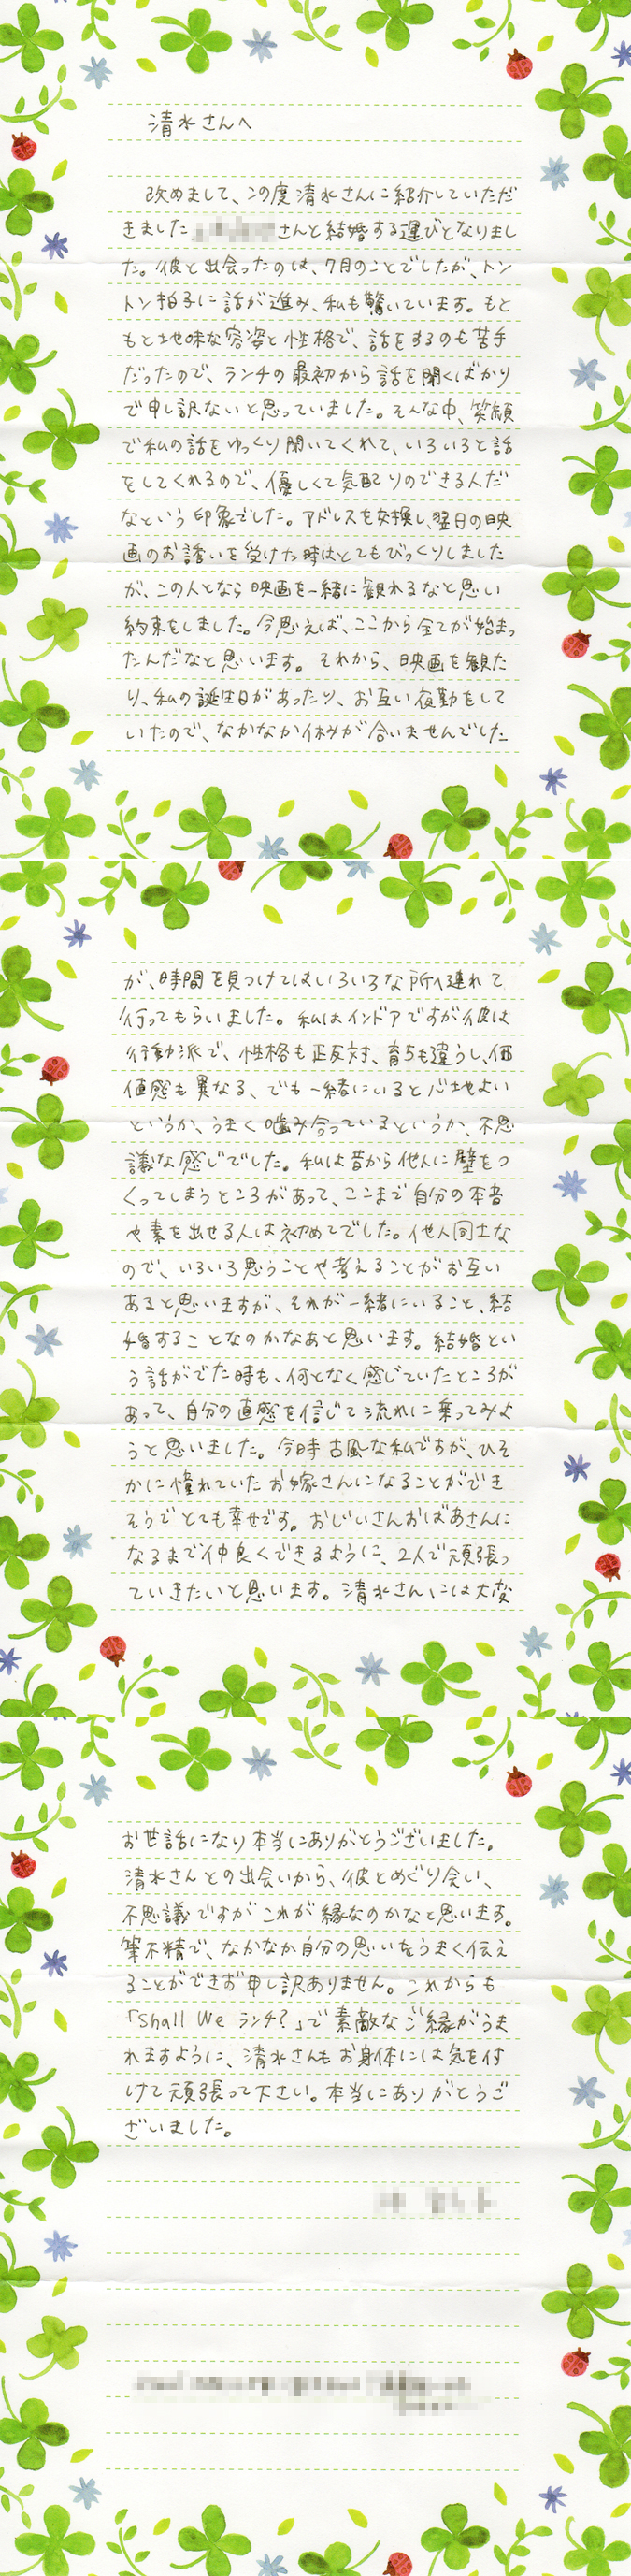 清水さんへ
改めまして、この度清水さんに紹介していただ
きました さんと結婚する運びとなりまし
た。彼と出会ったのは、7月のことでしたが、トン
トン拍子に話が進み、私も驚いています。もと
もと地味な容姿と性格で、話をするのも苦手
だったので、ランチの最初から話を聞くばかり
で申し訳ないと思っていました。そんな中、笑顔
で私の話をゆっくり聞いてくれて、いろいろと話
をしてくれるので、優しくて気配りのできる人だ
なという印象でした。アドレスを交換し、翌日の映
画のお誘いを受けた時はとてもびっくりしました
が、この人となら映画を一緒に観れるなと思い
約束をしました。今思えば、ここから全てが始まっ
たんだなと思います。それから、映画を観た
り、私の誕生日があったり、お互い夜勤をして
いたので、なかなか休みが合いませんでした
が、時間を見つけてはいろいろな所へ連れて
行ってもらいました。私はインドアですが彼は
行動派で、性格も正反対、育ちも違うし、価
値感も異なる、でも一緒にいると心地よい
というか、うまく噛み合っているというか、不思
議な感じでした。私は昔から他人に壁をつ
くってしまうところがあって、ここまで自分の本音
や素を出せる人は初めてでした。他人同士な
ので、いろいろ思うことや考えることがお互い
あると思いますが、それが一緒にいること、結
婚することなのかなあと思います。結婚とい
う話がでた時も、何となく感じていたところが
あって、自分の直感を信じて流れに乗ってみよ
うと思いました。今時古風な私ですが、ひそ
かに憧れていたお嫁さんになることができ
そうでとても幸せです。おじいさんおばあさんに
なるまで仲良くできるように、2人で頑張っ
ていきたいと思います。清水さんには大変
お世話になり本当にありがとうございました。
清水さんとの出会いから、彼とめぐり会い、
不思議ですがこれが縁なのかなと思います。
筆不精で、なかなか自分の思いをうまく伝え
ることができず申し訳ありません。これからも
「Shall We ランチ?」で素敵なご縁がうま
れますように、清水さんもお身体には気を付
けて頑張って下さい。本当にありがとうご
ざいました。